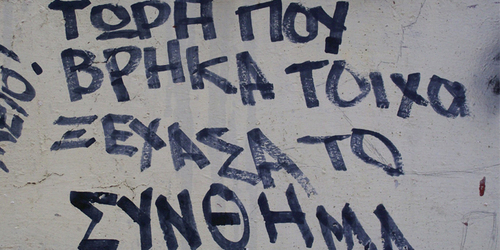 ΤΩΡΗ ΠΟΥ
ΒΡΗΚΑ ΤΟΙΧΟ
ΞΕΧΑΣΑ ΤΟ
ΣΥΝΘΗΜΑ